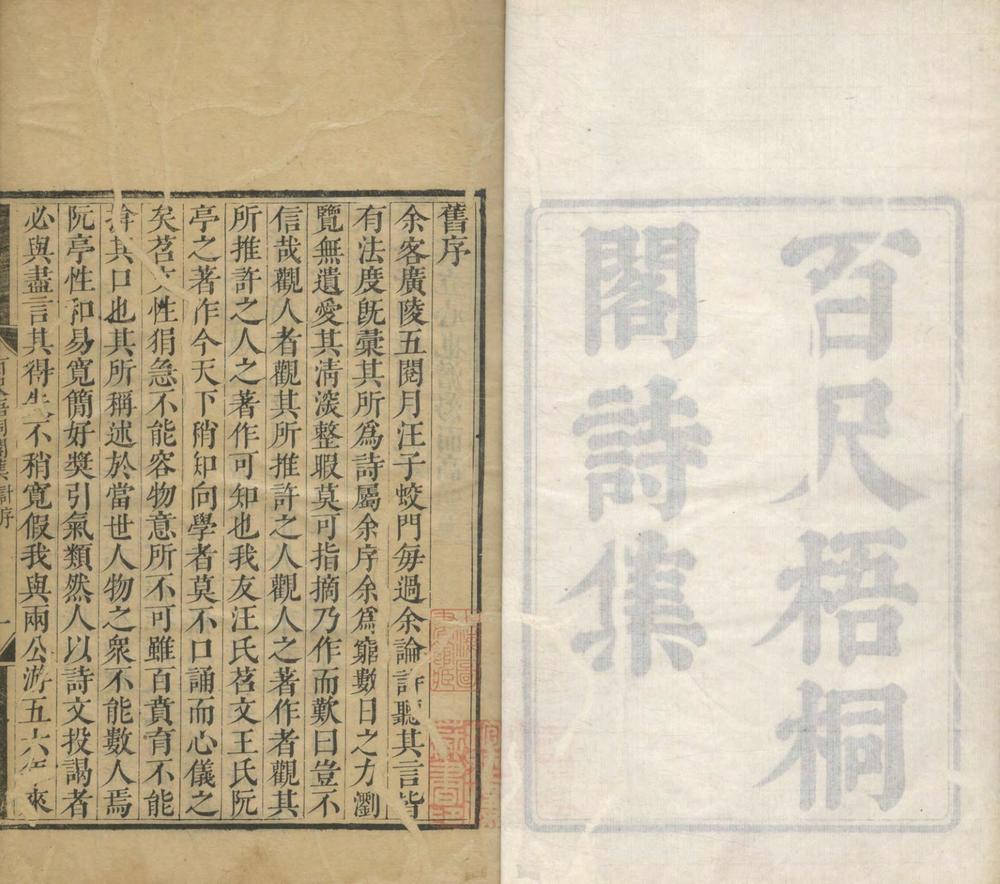 百尺梧桐
閣詩集
舊序
余客廣陵五閱月汪子蛟門每過余論詩聽其言皆
有法度既彙其所為詩屬余序余為窮數日之力瀏
覽無遺愛其清深整暇莫可指摘乃作而歎曰豈不
信哉觀人者觀其所推許之人觀人之著作者觀其
所推許之人之著作可知也我友汪氏苕文王氏阮
亭之著作今天下稍知向學者莫不口誦而心儀之
矣苕文性狷急不能容物意所不可雖百賁育不能
揜其口也其所稱述於當世人物之衆不能數人焉
阮亭性和易寬簡好獎引氣類然人以詩文投謁者
必與盡言其得失不稍寬假我與兩公游五六年來
百尺梧桐閣集 計序 一